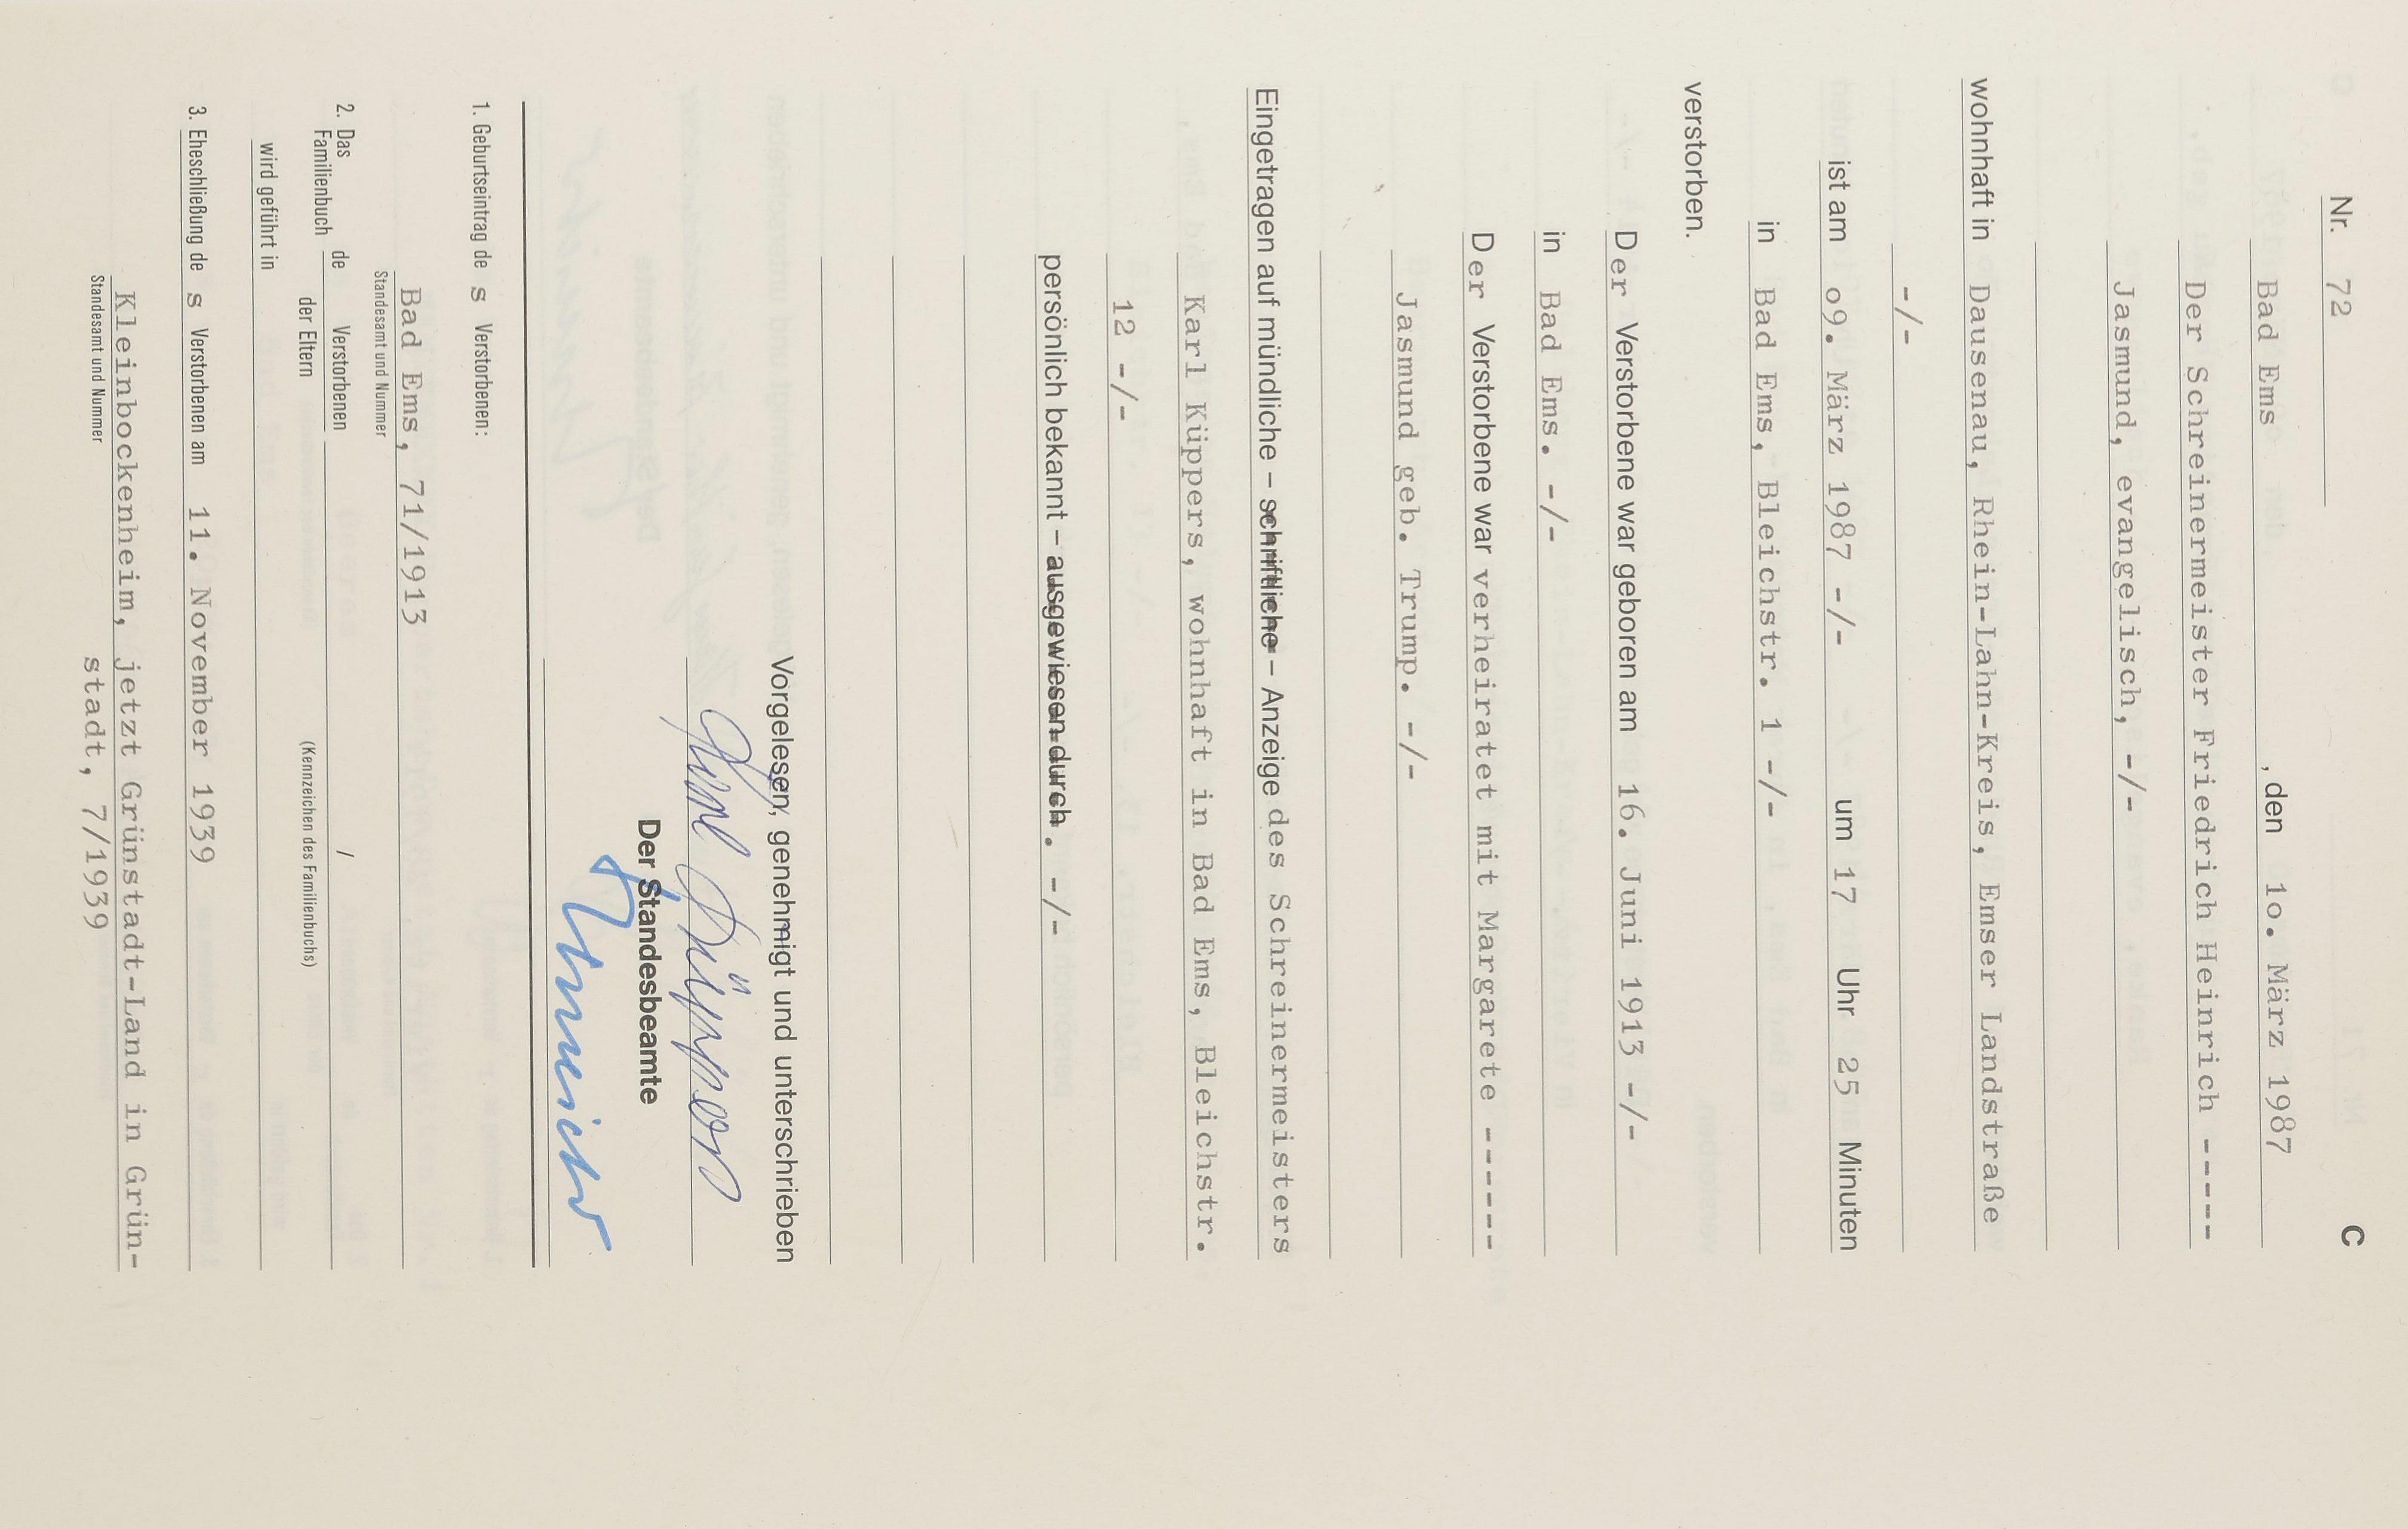 C
Nr. 72
Bad Ems , den 1o. März 1987
Der Schreinermeister Friedrich Heinrich -----
Jasmund, evangelisch, -/-
wohnhaft in Dausenau, Rhein-Lahn-Kreis, Emser Landstraße
-/-
ist am o9. März 1987 -/- um 17 Uhr 25 Minuten
in Bad Ems, Bleichstr. 1 -/-
verstorben.
Der Verstorbene war geboren am 16. Juni 1913 -/-
in Bad Ems. -/-
Der Verstorbene war verheiratet mit Margarete ------
Jasmund geb. Trump. -/-
Eingetragen auf mündliche – schriftliche – Anzeige des Schreinermeisters
Karl Küppers, wohnhaft in Bad Ems, Bleichstr.
12 -/-
persönlich bekannt – ausgewiesen durch. -/-
Vorgelesen, genehmigt und unterschrieben
Karl Küppers
Der Standesbeamte
1. Geburtseintrag des Verstorbenen:
Bad Ems, 71/1913
Standesamt und Nummer
2. Das Familienbuch de Verstorbenen /
der Eltern (Kennzeichen des Familienbuchs)
wird geführt in
3. Eheschließung des Verstorbenen am 11. November 1939
Kleinbockenheim, jetzt Grünstadt-Land in Grün-
Standesamt und Nummer stadt, 7/1939